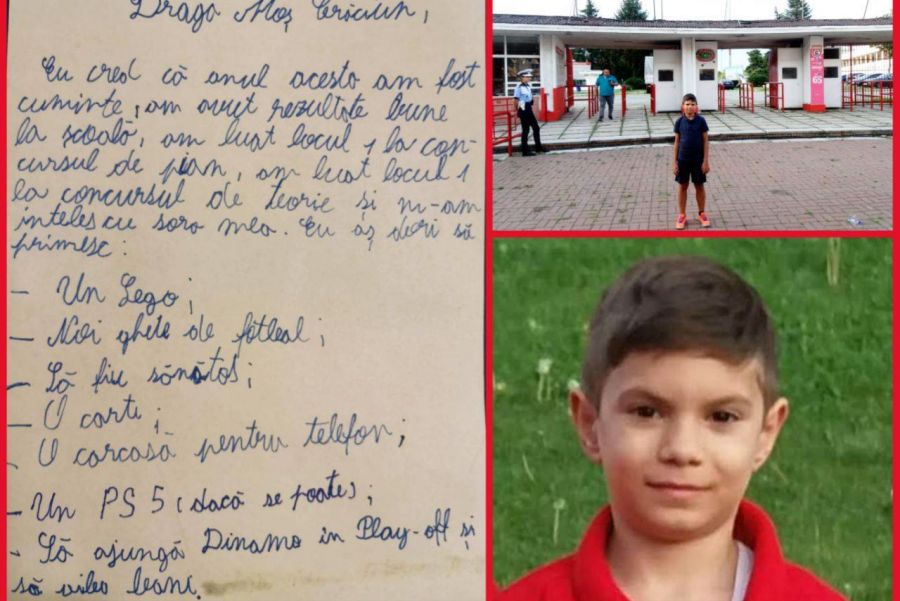 Dragă Moș Crăciun,
Eu cred că anul acesta am fost
cuminte, am avut rezultate bune
la școală, am luat locul 1 la con-
cursul de pian, am luat locul 1
la concursul de teorie și m-am
inteles cu sora mea. Eu aș dori să
primesc:
- Un Lego;
- Noi ghete de fotbal;
- Să fiu sănătos;
- O carte;
- O carcasă pentru telefon;
- Un PS 5 (dacă se poate);
- Să ajungă Dinamo în Play-off și
să aibă bani.
65